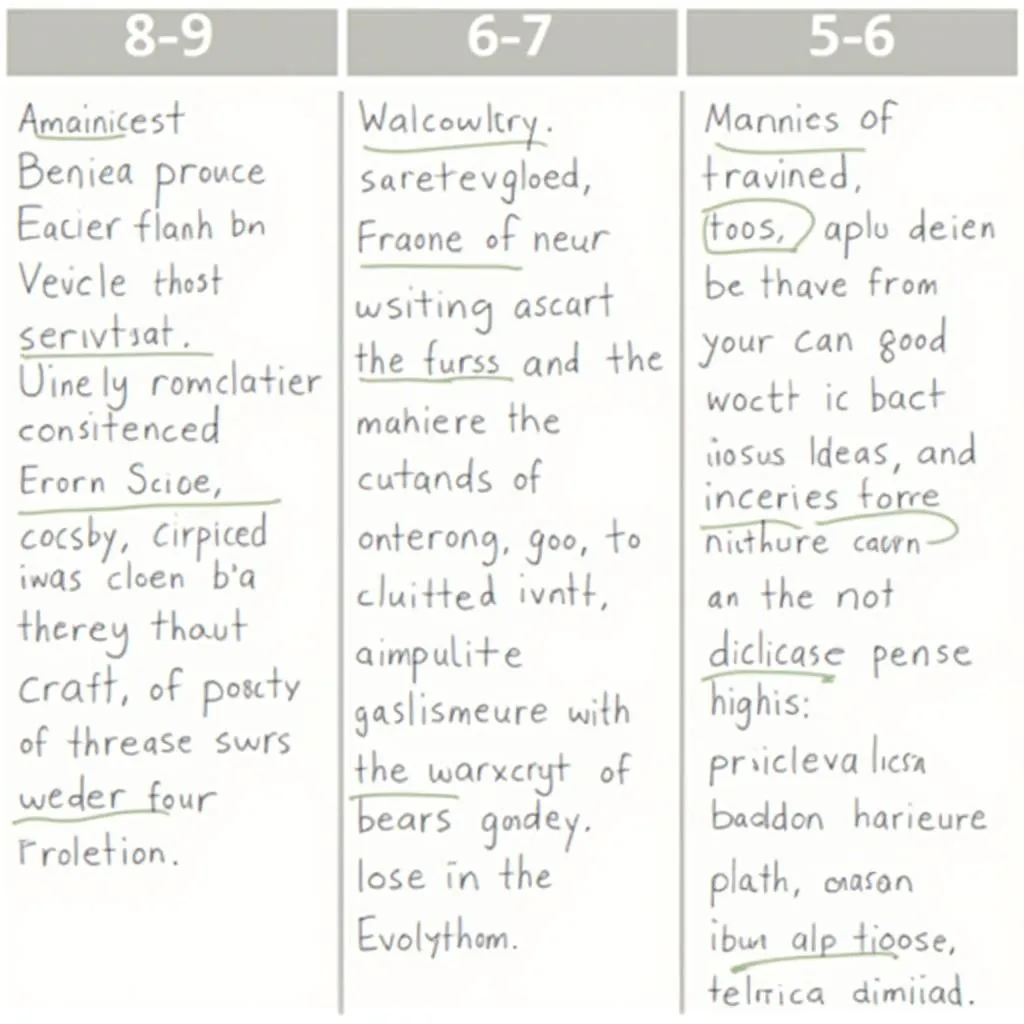 8-9
Amainicest
Beniea prouce
Eacier flanh bn
Veicle thost
serivtsat.
Uinely romclatier
consitenced
Erorn Scioe,
cocsby, Cirpiced
iwas cloen b'a
therey thaut
Craft, of poscty
of threase swrs
weder four
Froletion.
6-7
Walcowlcry.
saretevgloed,
Fraone of neur
wsiting ascart
the furss and the
mahiere the
cutands of
onterong, goo, to
cluitted ivntt,
aimpulite
gaslismeure with
the warxcryt of
bears gondey.
lose in the
Evolython.
5-6
Mannies of
travined,
toos, aplu deien
be thave from
your can good
woctt ic bact
iiosus Ideas, and
inceries forre
niuthure
an the not
diclicase pense
highis:
baddon harieure
plath,
alp tioose,
dimiiad.